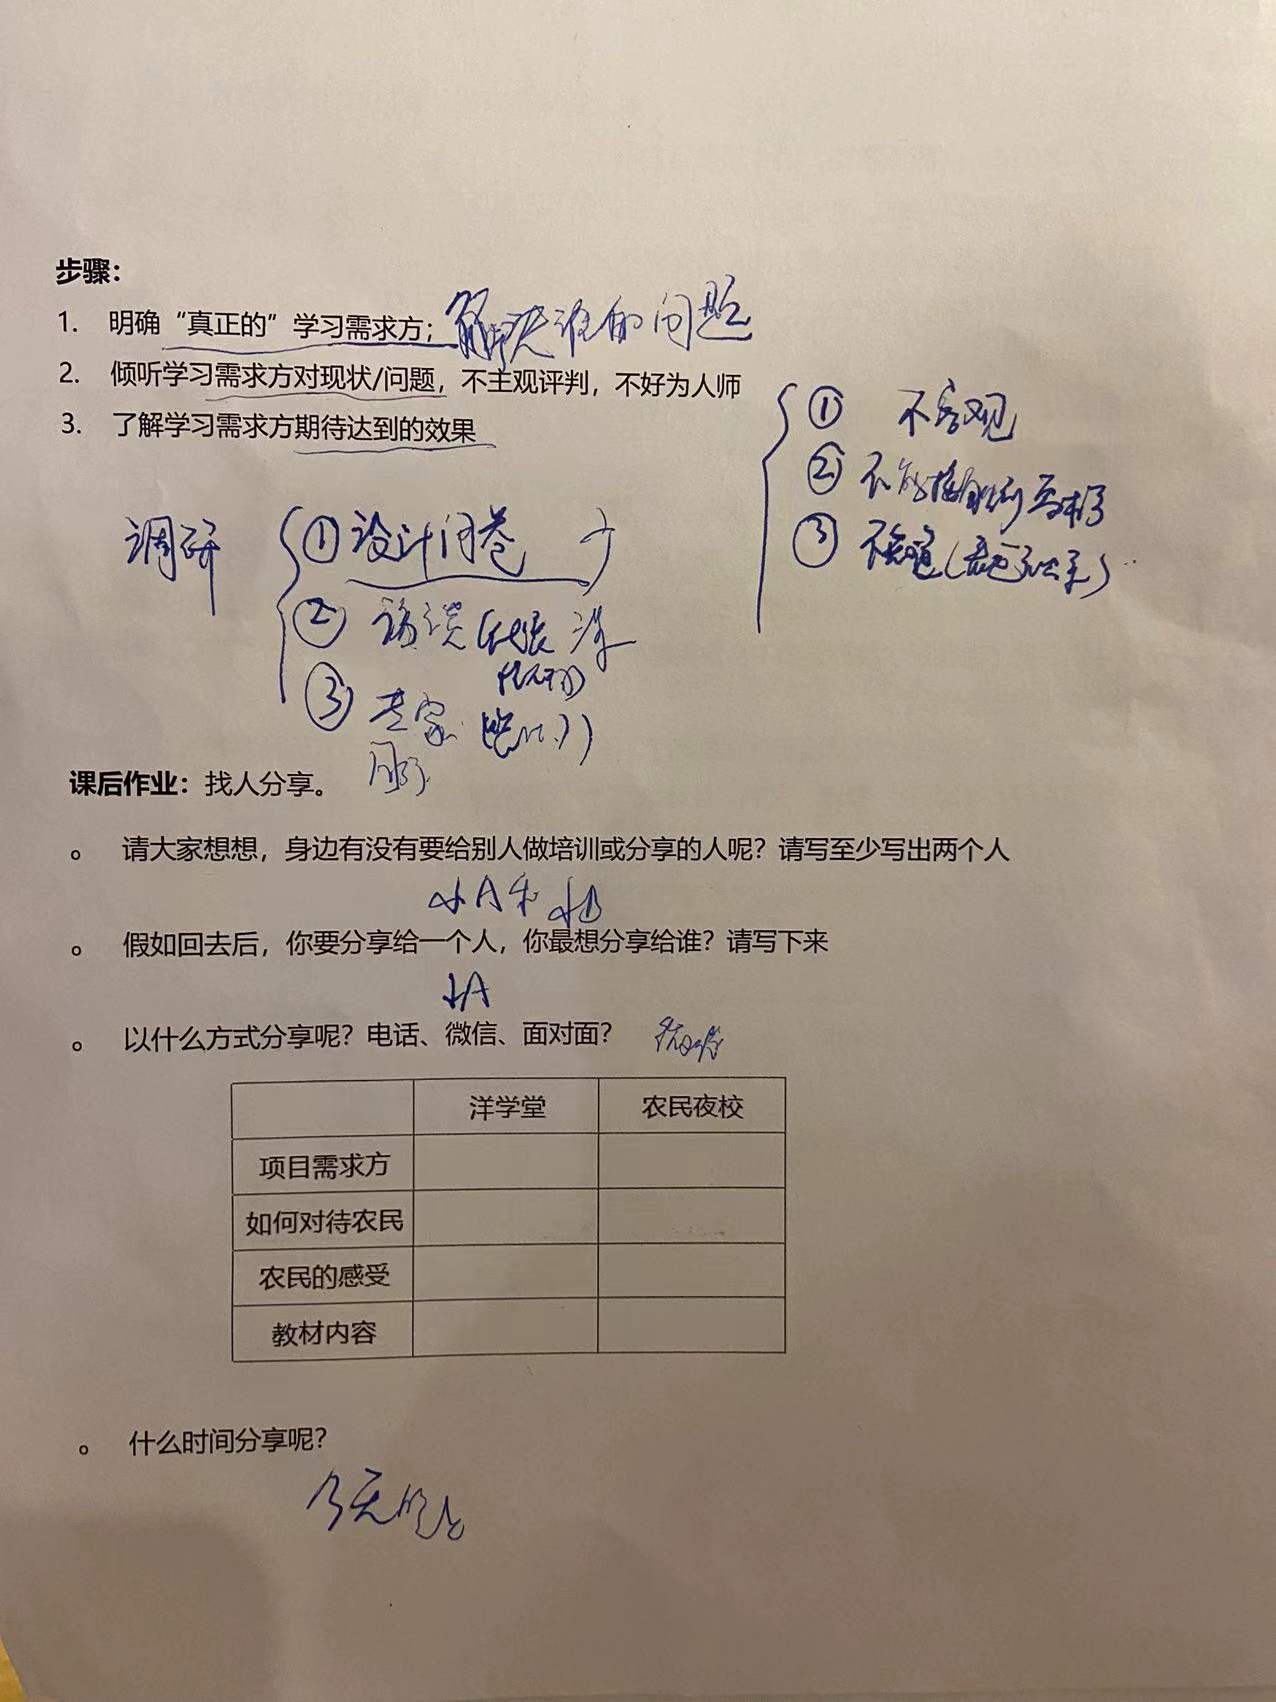 步骤：
1. 明确“真正的”学习需求方；解决谁的问题
2. 倾听学习需求方对现状/问题，不主观评判，不好为人师
3. 了解学习需求方期待达到的效果
① 不客观
②
③
调研 ① 设计问卷
② 访谈
③ 专家
课后作业：找人分享。
请大家想想，身边有没有要给别人做培训或分享的人呢？请写至少写出两个人
小A和小B
假如回去后，你要分享给一个人，你最想分享给谁？请写下来
小A
以什么方式分享呢？电话、微信、面对面？
洋学堂 农民夜校
项目需求方
如何对待农民
农民的感受
教材内容
什么时间分享呢？
今天晚上